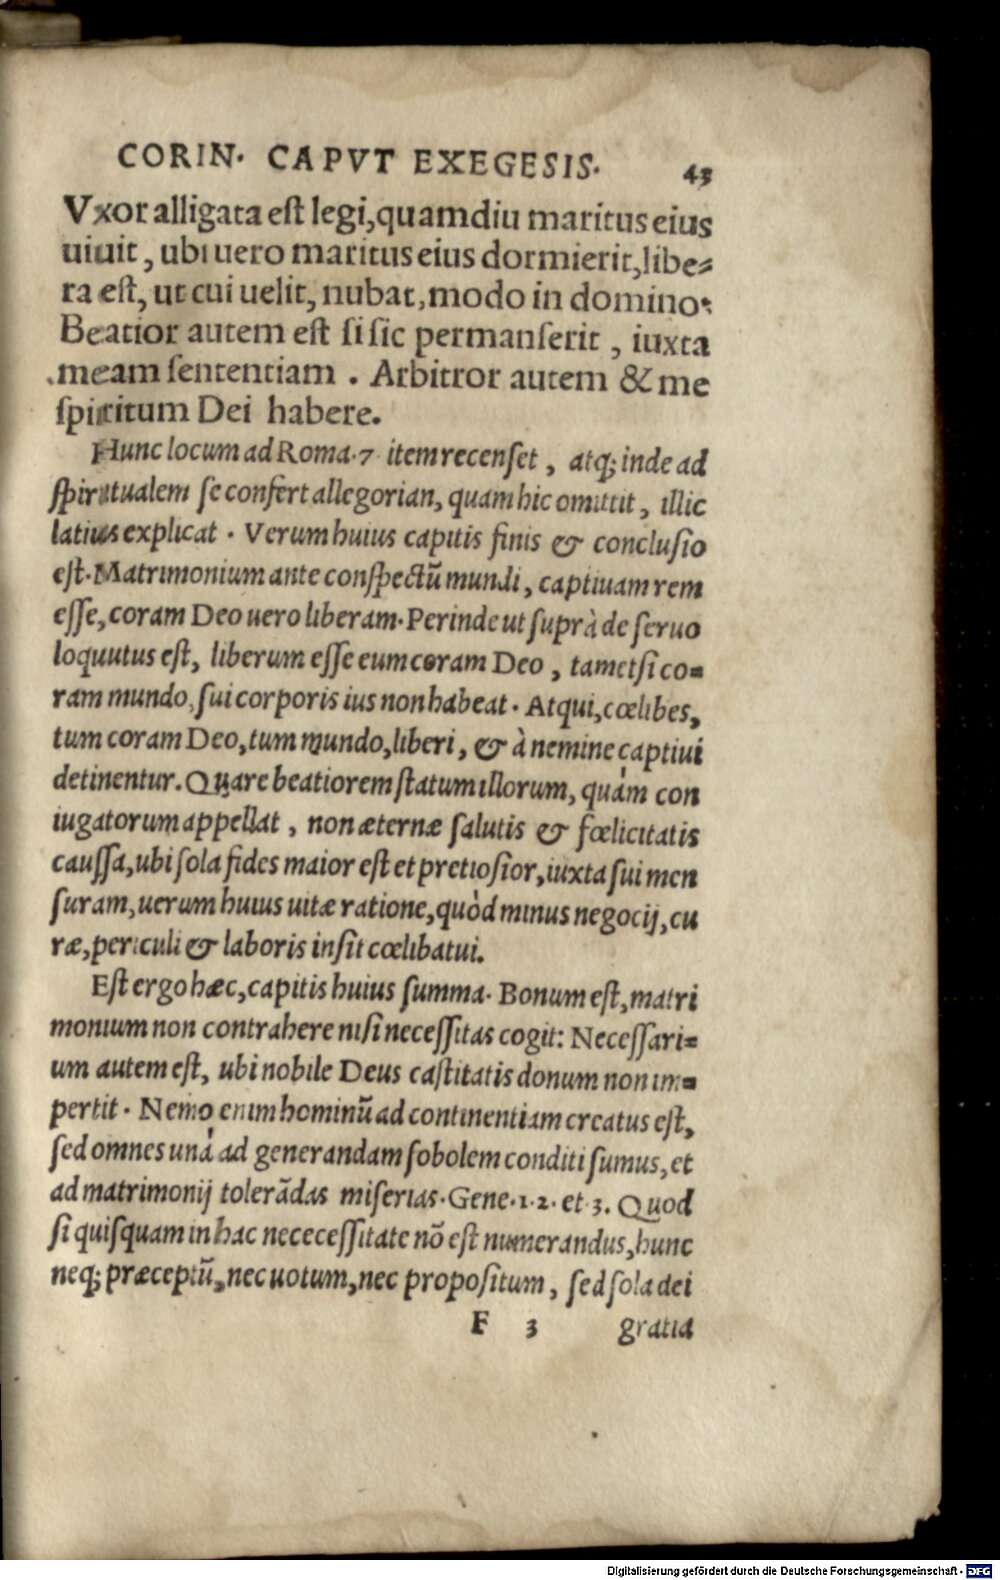 CORIN. CAPVT EXEGESIS. 43
Vxor alligata est legi, quamdiu maritus eius
uiuit, ubi uero maritus eius dormierit, libe-
ra est, ut cui uelit, nubat, modo in domino.
Beatior autem est si sic permanserit, iuxta
meam sententiam. Arbitror autem & me
spiritum Dei habere.
Hunc locum ad Roma. 7 item recenset, atq; inde ad
spiritualem se confert allegorian, quam hic omittit, illic
latius explicat. Verum huius capitis finis & conclusio
est. Matrimonium ante conspectū mundi, captiuam rem
esse, coram Deo uero liberam. Perinde ut suprà de seruo
loquutus est, liberum esse eum coram Deo, tametsi co-
ram mundo, sui corporis ius non habeat. Atqui, cœlibes,
tum coram Deo, tum mundo, liberi, & à nemine captiui
detinentur. Quare beatiorem statum illorum, quàm con
iugatorum appellat, non æternæ salutis & fœlicitatis
caussa, ubi sola fides maior est et pretiosior, iuxta sui men
suram, uerum huius uitæ ratione, quòd minus negocij, cu
ræ, periculi & laboris insit cœlibatui.
Est ergo hæc, capitis huius summa. Bonum est, matri
monium non contrahere nisi necessitas cogit: Necessari-
um autem est, ubi nobile Deus castitatis donum non im-
pertit. Nemo enim hominū ad continentiam creatus est,
sed omnes unà ad generandam sobolem conditi sumus, et
ad matrimonij tolerādas miserias. Gene. 1. 2. et 3. Quod
si quisquam in hac nececessitate nō est numerandus, hunc
neq; præceptū, nec uotum, nec propositum, sed sola dei
F 3 gratia
Digitalisierung gefördert durch die Deutsche Forschungsgemeinschaft - DFG